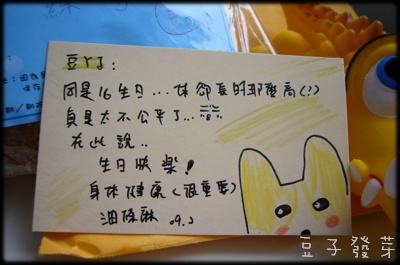 豆ㄚ子：
同是16生日...妳卻長的那麼高(?)
真是太不公平了...
在此說..
生日快樂!
身体健康(很重要)
油條琳 09.2
豆子發芽